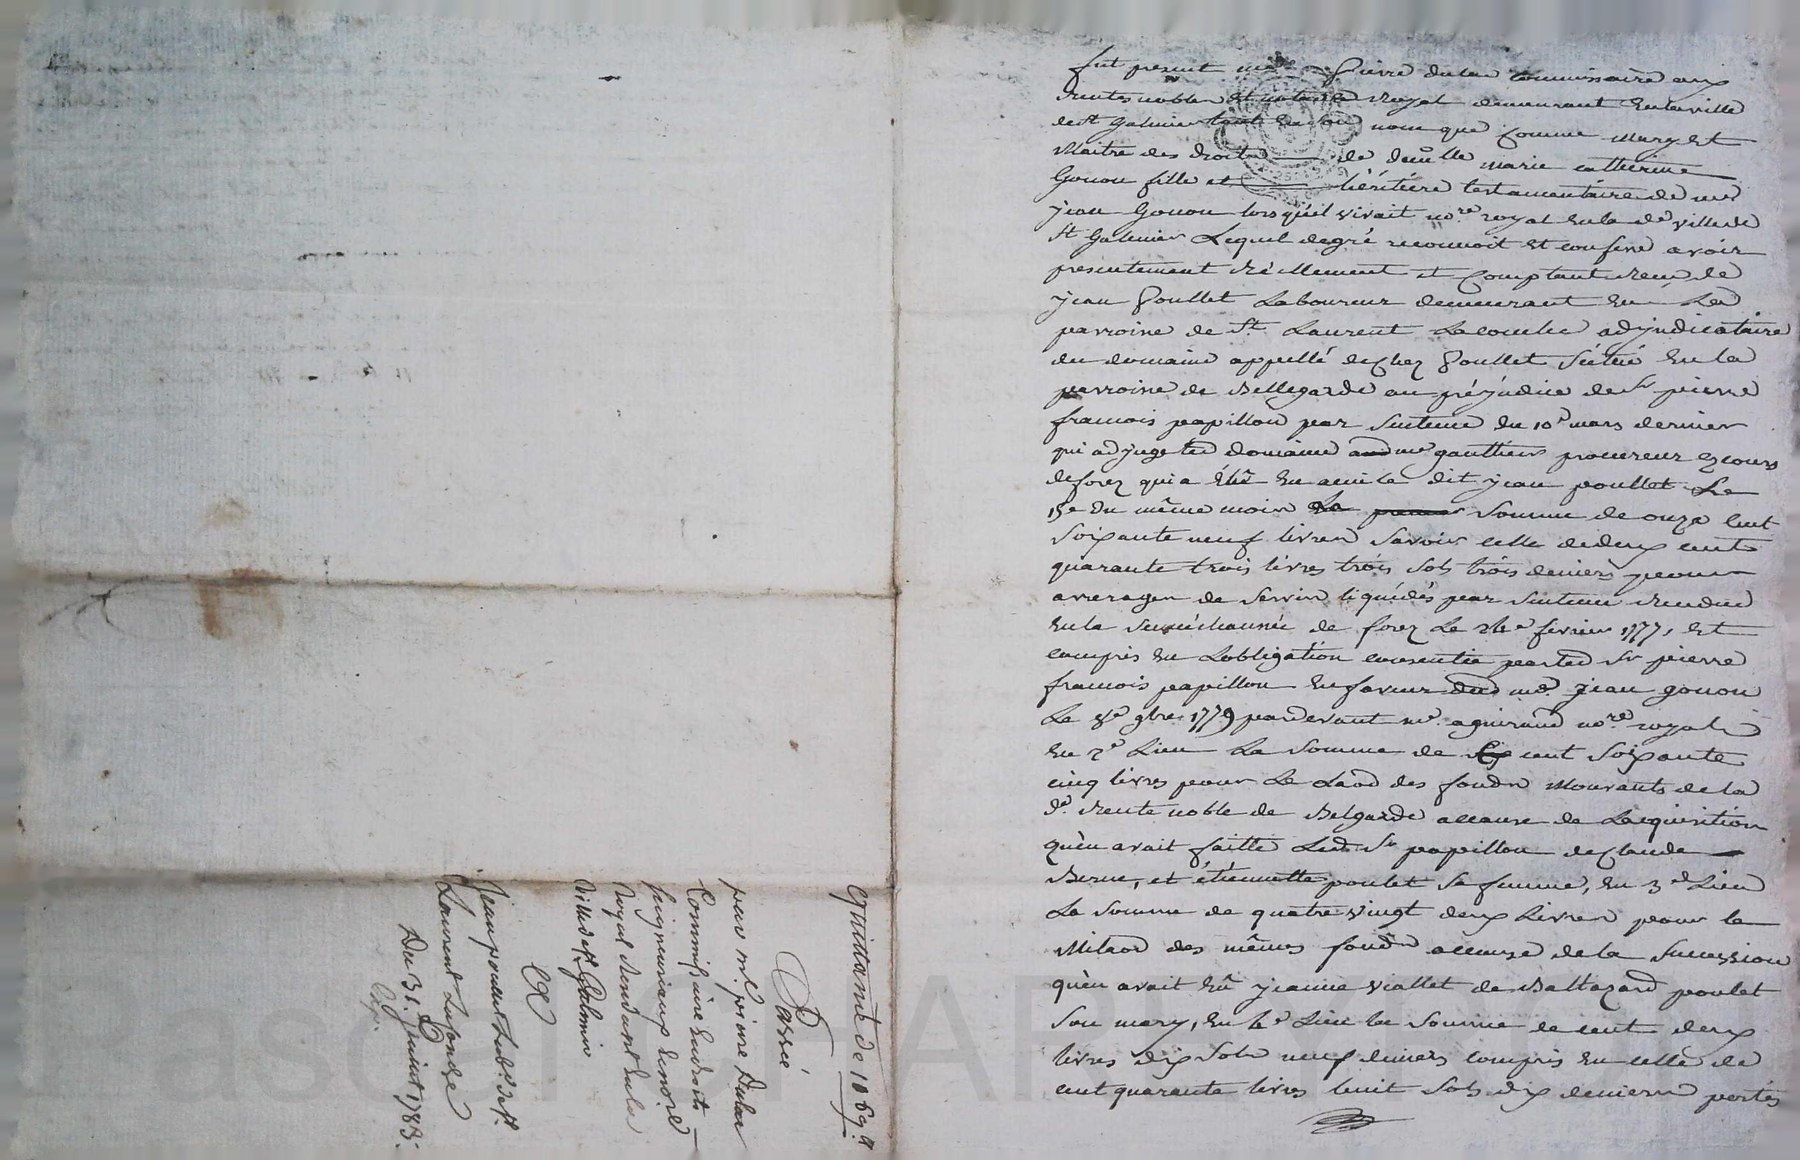 fut present me Pierre dulac Commissaire aux
Rentes nobles et notaire Royal demeurant en la ville
de St Galmier tant en son nom que Comme Mary et
Maitre des droits de demlle marie catherine
Gonon fille et héritiere testamentaire de me
jean Gonon lorsqu'il vivait nore royal en la de ville de
St Galmier Lequel de gré reconnoit et confesse avoir
presentement Réellement et Comptant Reçu de
jean Poullet Laboureur demeurant en La
parroisse de St Laurent Laconche adjudicataire
du domaine appellé de Chez Poullet Scitué en la
parroisse de Bellegarde au préjudice de Sr pierre
francois papillon par Sentence du 10e mars dernier
qui adjuge led domaine a me gauthier procureur ez cours
de forez qui a élû en ami le dit jean poullet Le
15e du même mois La Somme de onze Cent
Soixante neuf livres Savoir celle de deux cent
quarante trois livres trois sols trois deniers pour
arrerages de Servis liquidés par Sentence Rendue
en la Senéchaussée de forez Le 24e fevrier 1777, Et
compris en Lobligation consentie par led Sr pierre
francois papillon en faveur dud me Jean gonon
Le 8e 9bre 1779 pardevant me aguiraud nore royal
en 2e Lieu La Somme de cent Soixante
cinq livres pour Le Laod des fonds Mouvants de la
de Rente noble de Belgarde acause de Lacquisition
qu'en avait faitte Led Sr papillon de Claude
Berne, et étiennette poulet Sa femme, en 3e Lieu
La Somme de quatre vingt deux Livres pour le
Milaod des mêmes fonds acause de la Succession
qu'en avait Eû jeanne viallet de Baltazard poulet
Son mary, en 4e Lieu la Somme de cent deux
livres dix Sols neuf deniers compris en celle de
cent quarante livres huit Sols dix deniers portés
Quittance de 1169 ₶
Passée
par me pierre Dulac
Commissaire en droits
Seigneuriaux et notre
Royal Residant en la
ville de St Galmier
A
Jean poullet Labr de St
Laurent Laconche
Du 31 Juillet 1783.
Exp.